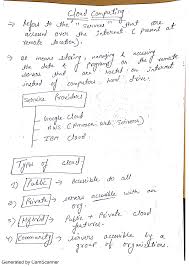 Cloud Computing
→ Refers to the "Services" that are
accessed over the Internet (present at
remote location).
→ It means storing, managing & accessing
the data & programs on the remote
servers that are hosted on internet
instead of computers hard drive.
Service Providers
Google Cloud
AWS (Amazon web Services)
IBM Cloud
Types of cloud
1) Public → accessible to all
2) Private → services accessible within an
3) Hybrid → Public + Private cloud
features.
4) Community → services accessible by a
group of organisations.
Generated by CamScanner